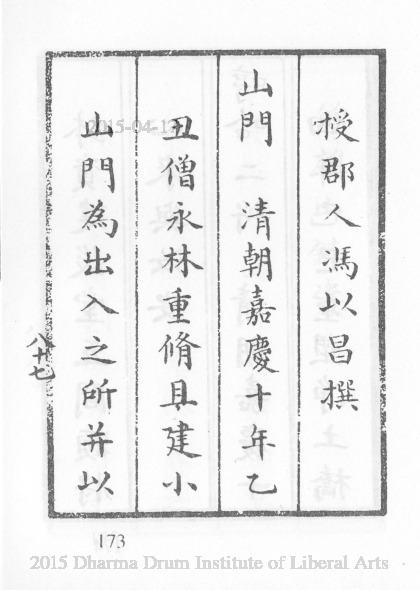 授郡人馮以昌撰
山門 清朝嘉慶十年乙
丑僧永林重脩且建小
山門為出入之所并以
八十七
173
2015-04-13
2015 Dharma Drum Institute of Liberal Arts